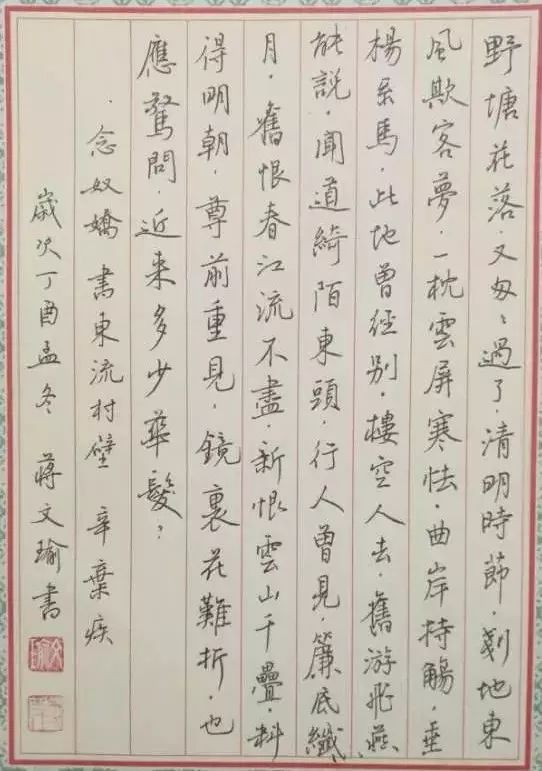 野塘花落，又匆〻過了，清明時節，剗地東
風欺客夢，一枕雲屏寒怯，曲岸持觴，垂
楊系馬，此地曾經別，樓空人去，舊游飛燕
能說，聞道綺陌東頭，行人曾見，簾底纖〻
月，舊恨春江流不盡，新恨雲山千疊，料
得明朝，尊前重見，鏡裏花難折，也
應驚問，近來多少華髮？
·念奴嬌 書東流村壁 辛棄疾
歲次丁酉孟冬 蔣文瑜書